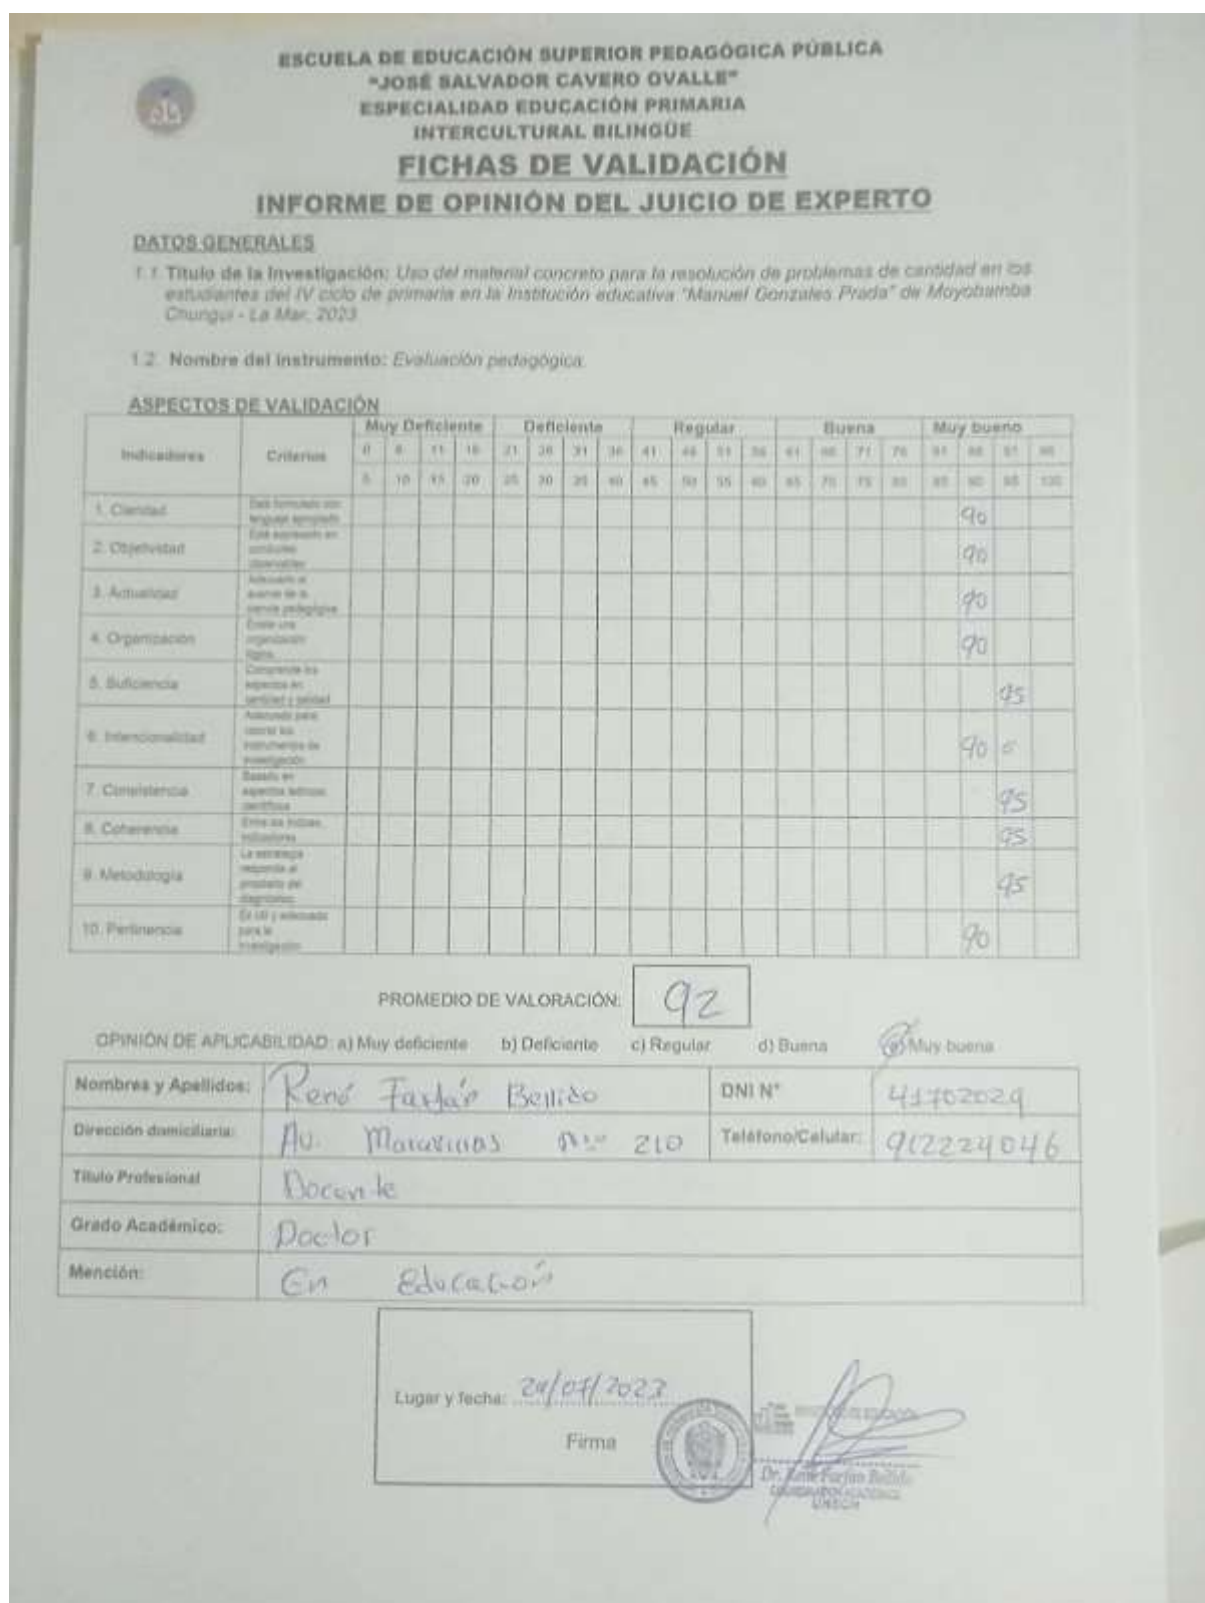 ESCUELA DE EDUCACIÓN SUPERIOR PEDAGÓGICA PÚBLICA
"JOSÉ SALVADOR CAVERO OVALLE"
ESPECIALIDAD EDUCACIÓN PRIMARIA
INTERCULTURAL BILINGÜE
FICHAS DE VALIDACIÓN
INFORME DE OPINIÓN DEL JUICIO DE EXPERTO
DATOS GENERALES
1.1. Título de la Investigación: Uso del material concreto para la resolución de problemas de cantidad en los
estudiantes del IV ciclo de primaria en la Institución educativa "Manuel Gonzales Prada" de Moyobamba
Chungui - La Mar, 2023
1.2. Nombre del instrumento: Evaluación pedagógica.
ASPECTOS DE VALIDACIÓN
Indicadores Criterios Muy Deficiente Deficiente Regular Buena Muy bueno
0 6 11 16 21 26 31 36 41 46 51 56 61 66 71 76 81 86 91 96
5 10 15 20 25 30 35 40 45 50 55 60 65 70 75 80 85 90 95 100
1. Claridad Está formulado con
lenguaje apropiado 90
2. Objetividad Está expresado en
conductas
observables 90
3. Actualidad Adecuado al
avance de la
ciencia pedagógica 90
4. Organización Existe una
organización
lógica 90
5. Suficiencia Comprende los
aspectos en
cantidad y calidad 95
6. Intencionalidad Adecuado para
valorar los
instrumentos de
investigación 90
7. Consistencia Basado en
aspectos teóricos
científicos 95
8. Coherencia Entre los índices,
indicadores 95
9. Metodología La estrategia
responde al
propósito del
diagnóstico 95
10. Pertinencia Es útil y adecuado
para la
investigación 90
PROMEDIO DE VALORACIÓN: 92
OPINIÓN DE APLICABILIDAD: a) Muy deficiente b) Deficiente c) Regular d) Buena e) Muy buena
Nombres y Apellidos: René Farfán Bellido DNI N° 41702029
Dirección domiciliaria: Av. N° 210 Teléfono/Celular: 912224046
Título Profesional Docente
Grado Académico: Doctor
Mención: En Educación
Lugar y fecha: 24/07/2023
Firma
Dr. René Farfán Bellido
COORDINADOR ACADÉMICO
UNSCH